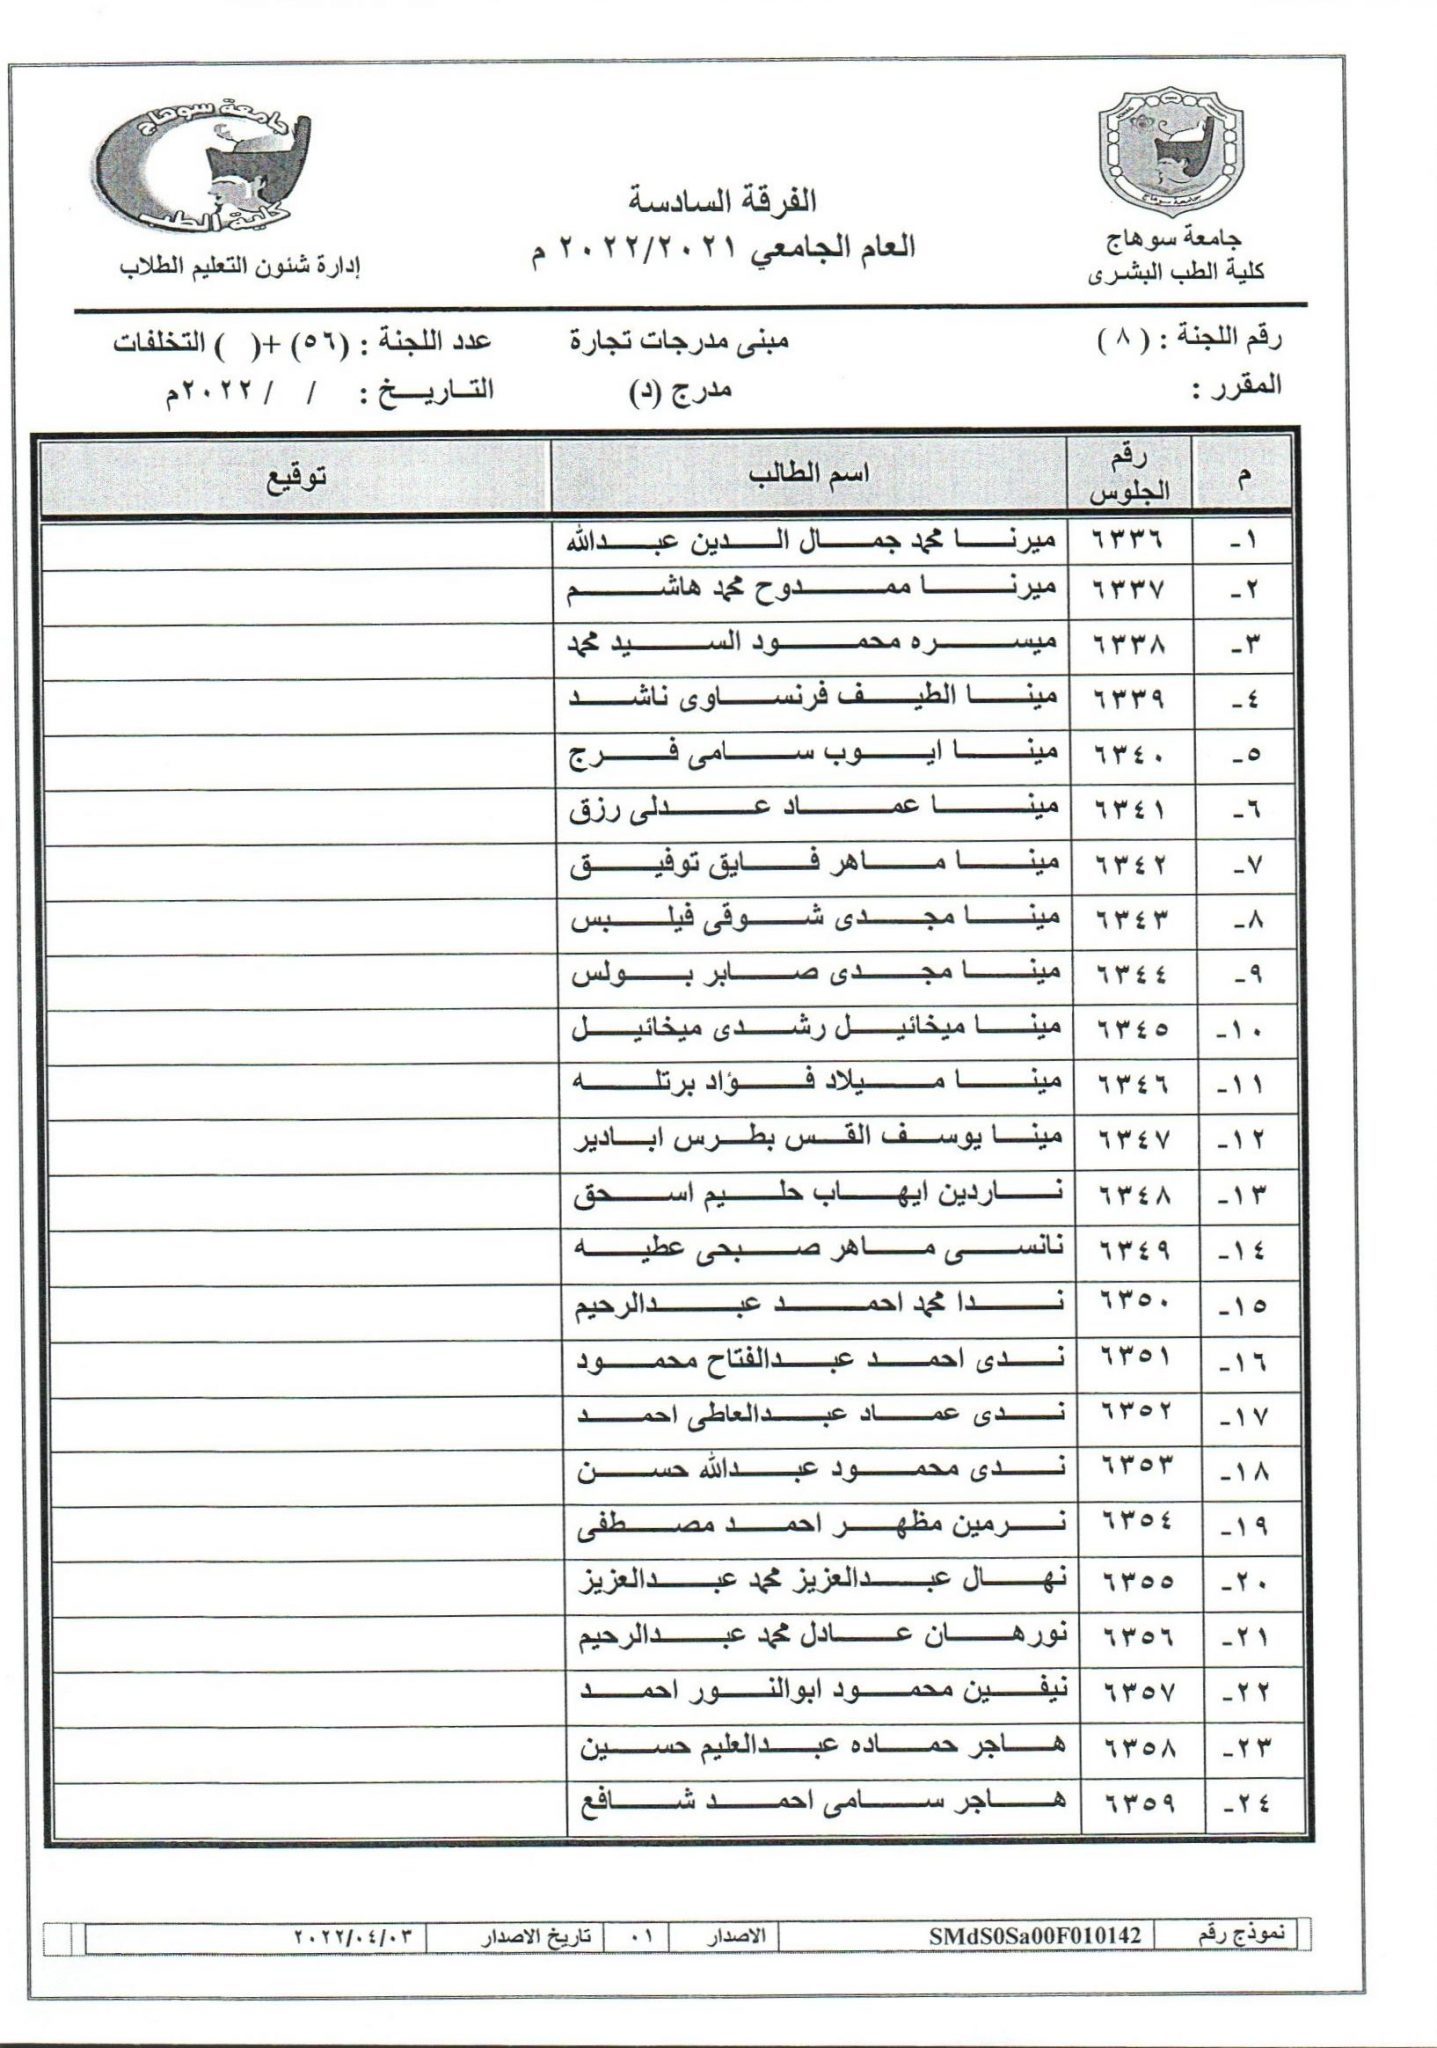 جامعة سوهاج
كلية الطب
جامعة سوهاج
جامعة سوهاج
كلية الطب البشرى
الفرقة السادسة
العام الجامعي ٢٠٢٢/٢٠٢١ م
إدارة شئون التعليم الطلاب
رقم اللجنة : ( ٨ ) مبنى مدرجات تجارة عدد اللجنة : (٥٦) +( ) التخلفات
المقرر : مدرج (د) التاريخ : / / ٢٠٢٢م
م رقم الجلوس اسم الطالب توقيع
١- ٦٣٣٦ ميرنا محمد جمال الدين عبدالله
٢- ٦٣٣٧ ميرنا ممدوح محمد هاشم
٣- ٦٣٣٨ ميسره محمود السيد محمد
٤- ٦٣٣٩ مينا الطيف فرنساوى ناشد
٥- ٦٣٤٠ مينا ايوب سامى فرج
٦- ٦٣٤١ مينا عماد عدلى رزق
٧- ٦٣٤٢ مينا ماهر فايق توفيق
٨- ٦٣٤٣ مينا مجدى شوقى فيلبس
٩- ٦٣٤٤ مينا مجدى صابر بولس
١٠- ٦٣٤٥ مينا ميخائيل رشدى ميخائيل
١١- ٦٣٤٦ مينا ميلاد فؤاد برتله
١٢- ٦٣٤٧ مينا يوسف القس بطرس ابادير
١٣- ٦٣٤٨ ناردين ايهاب حليم اسحق
١٤- ٦٣٤٩ نانسى ماهر صبحى عطيه
١٥- ٦٣٥٠ ندا محمد احمد عبدالرحيم
١٦- ٦٣٥١ ندى احمد عبدالفتاح محمود
١٧- ٦٣٥٢ ندى عماد عبدالعاطى احمد
١٨- ٦٣٥٣ ندى محمود عبدالله حسن
١٩- ٦٣٥٤ نرمين مظهر احمد مصطفى
٢٠- ٦٣٥٥ نهال عبدالعزيز محمد عبدالعزيز
٢١- ٦٣٥٦ نورهان عادل محمد عبدالرحيم
٢٢- ٦٣٥٧ نيفين محمود ابوالنور احمد
٢٣- ٦٣٥٨ هاجر حماده عبدالعليم حسين
٢٤- ٦٣٥٩ هاجر سامى احمد شافع
نموذج رقم SMdS0Sa00F010142 الاصدار ٠١ تاريخ الاصدار ٢٠٢٢/٠٤/٠٣